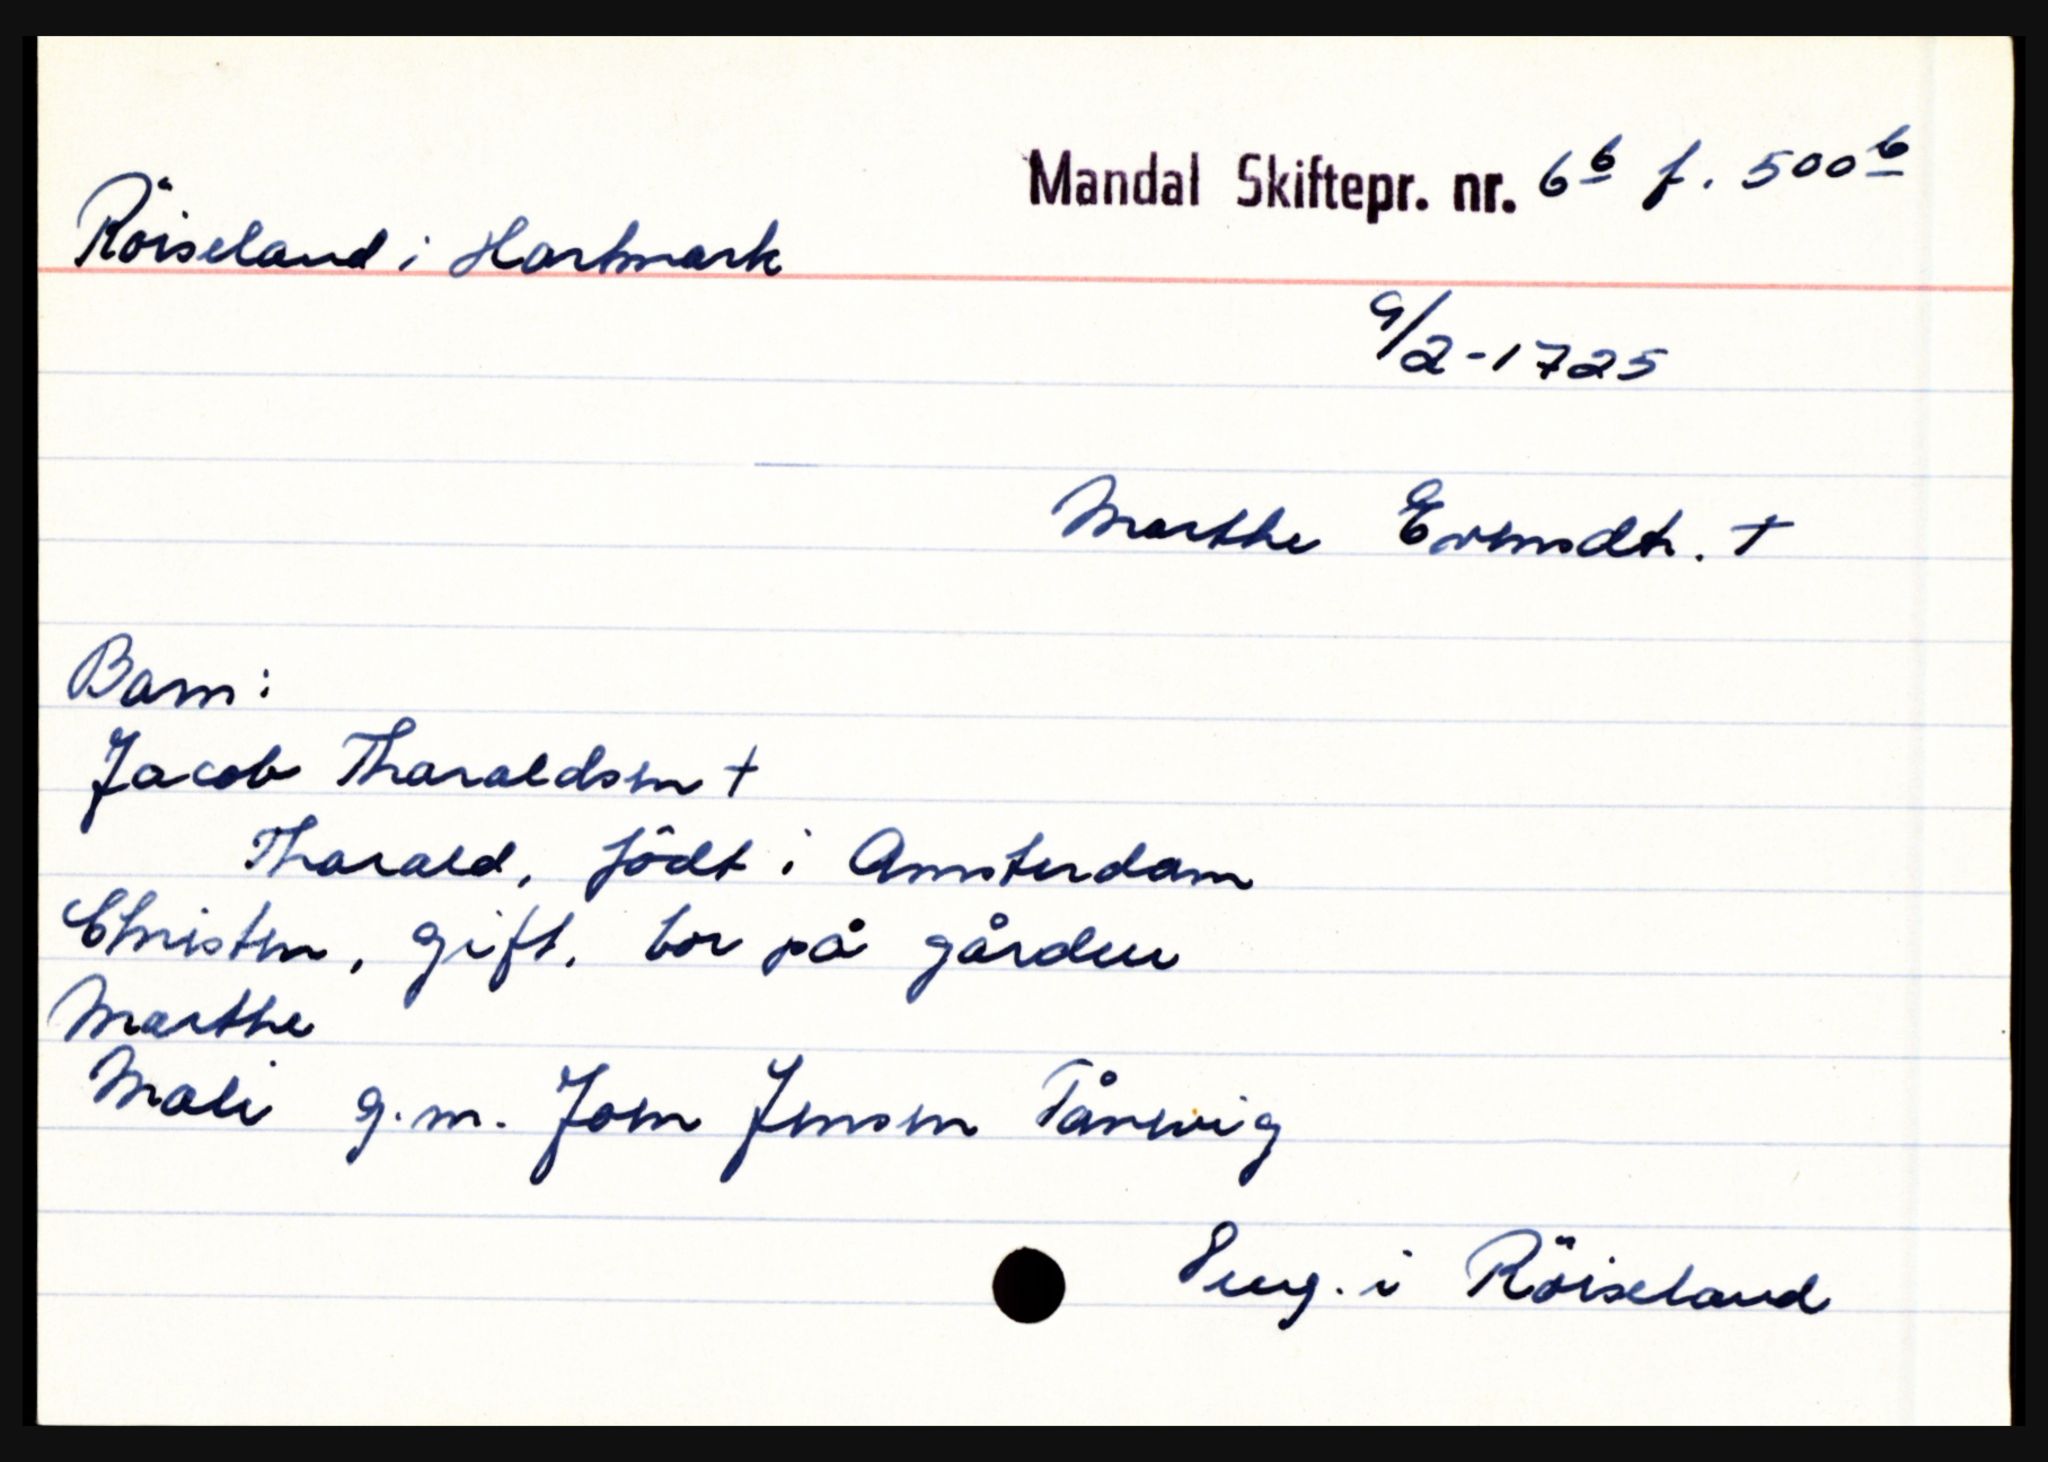 Mandal Skiftepr. nr. 6b f. 500b
Röiseland i Hartmark
9/2-1725
Marthe Evensdtr. +
Barn:
Jacob Tharaldsen +
Tharald, födt i Amsterdam
Christen, gift. bor på gården
Marthe
Mali g.m. Joen Jensen Tånevig
i Röiseland